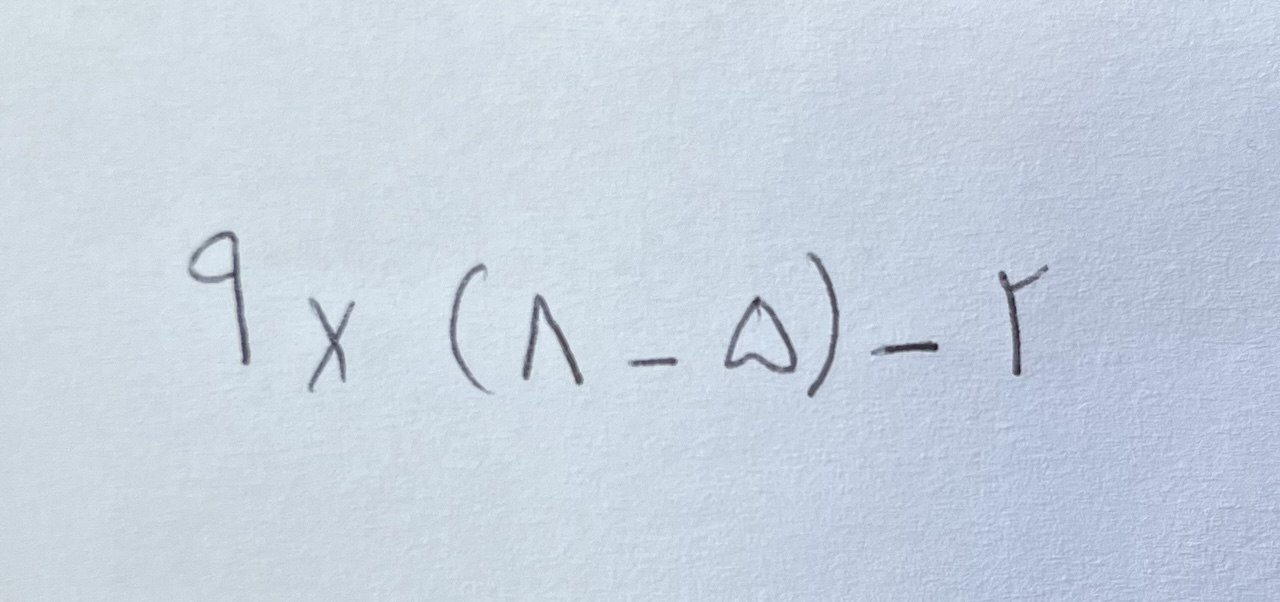 ۹ × (۸ - ۵) - ۲